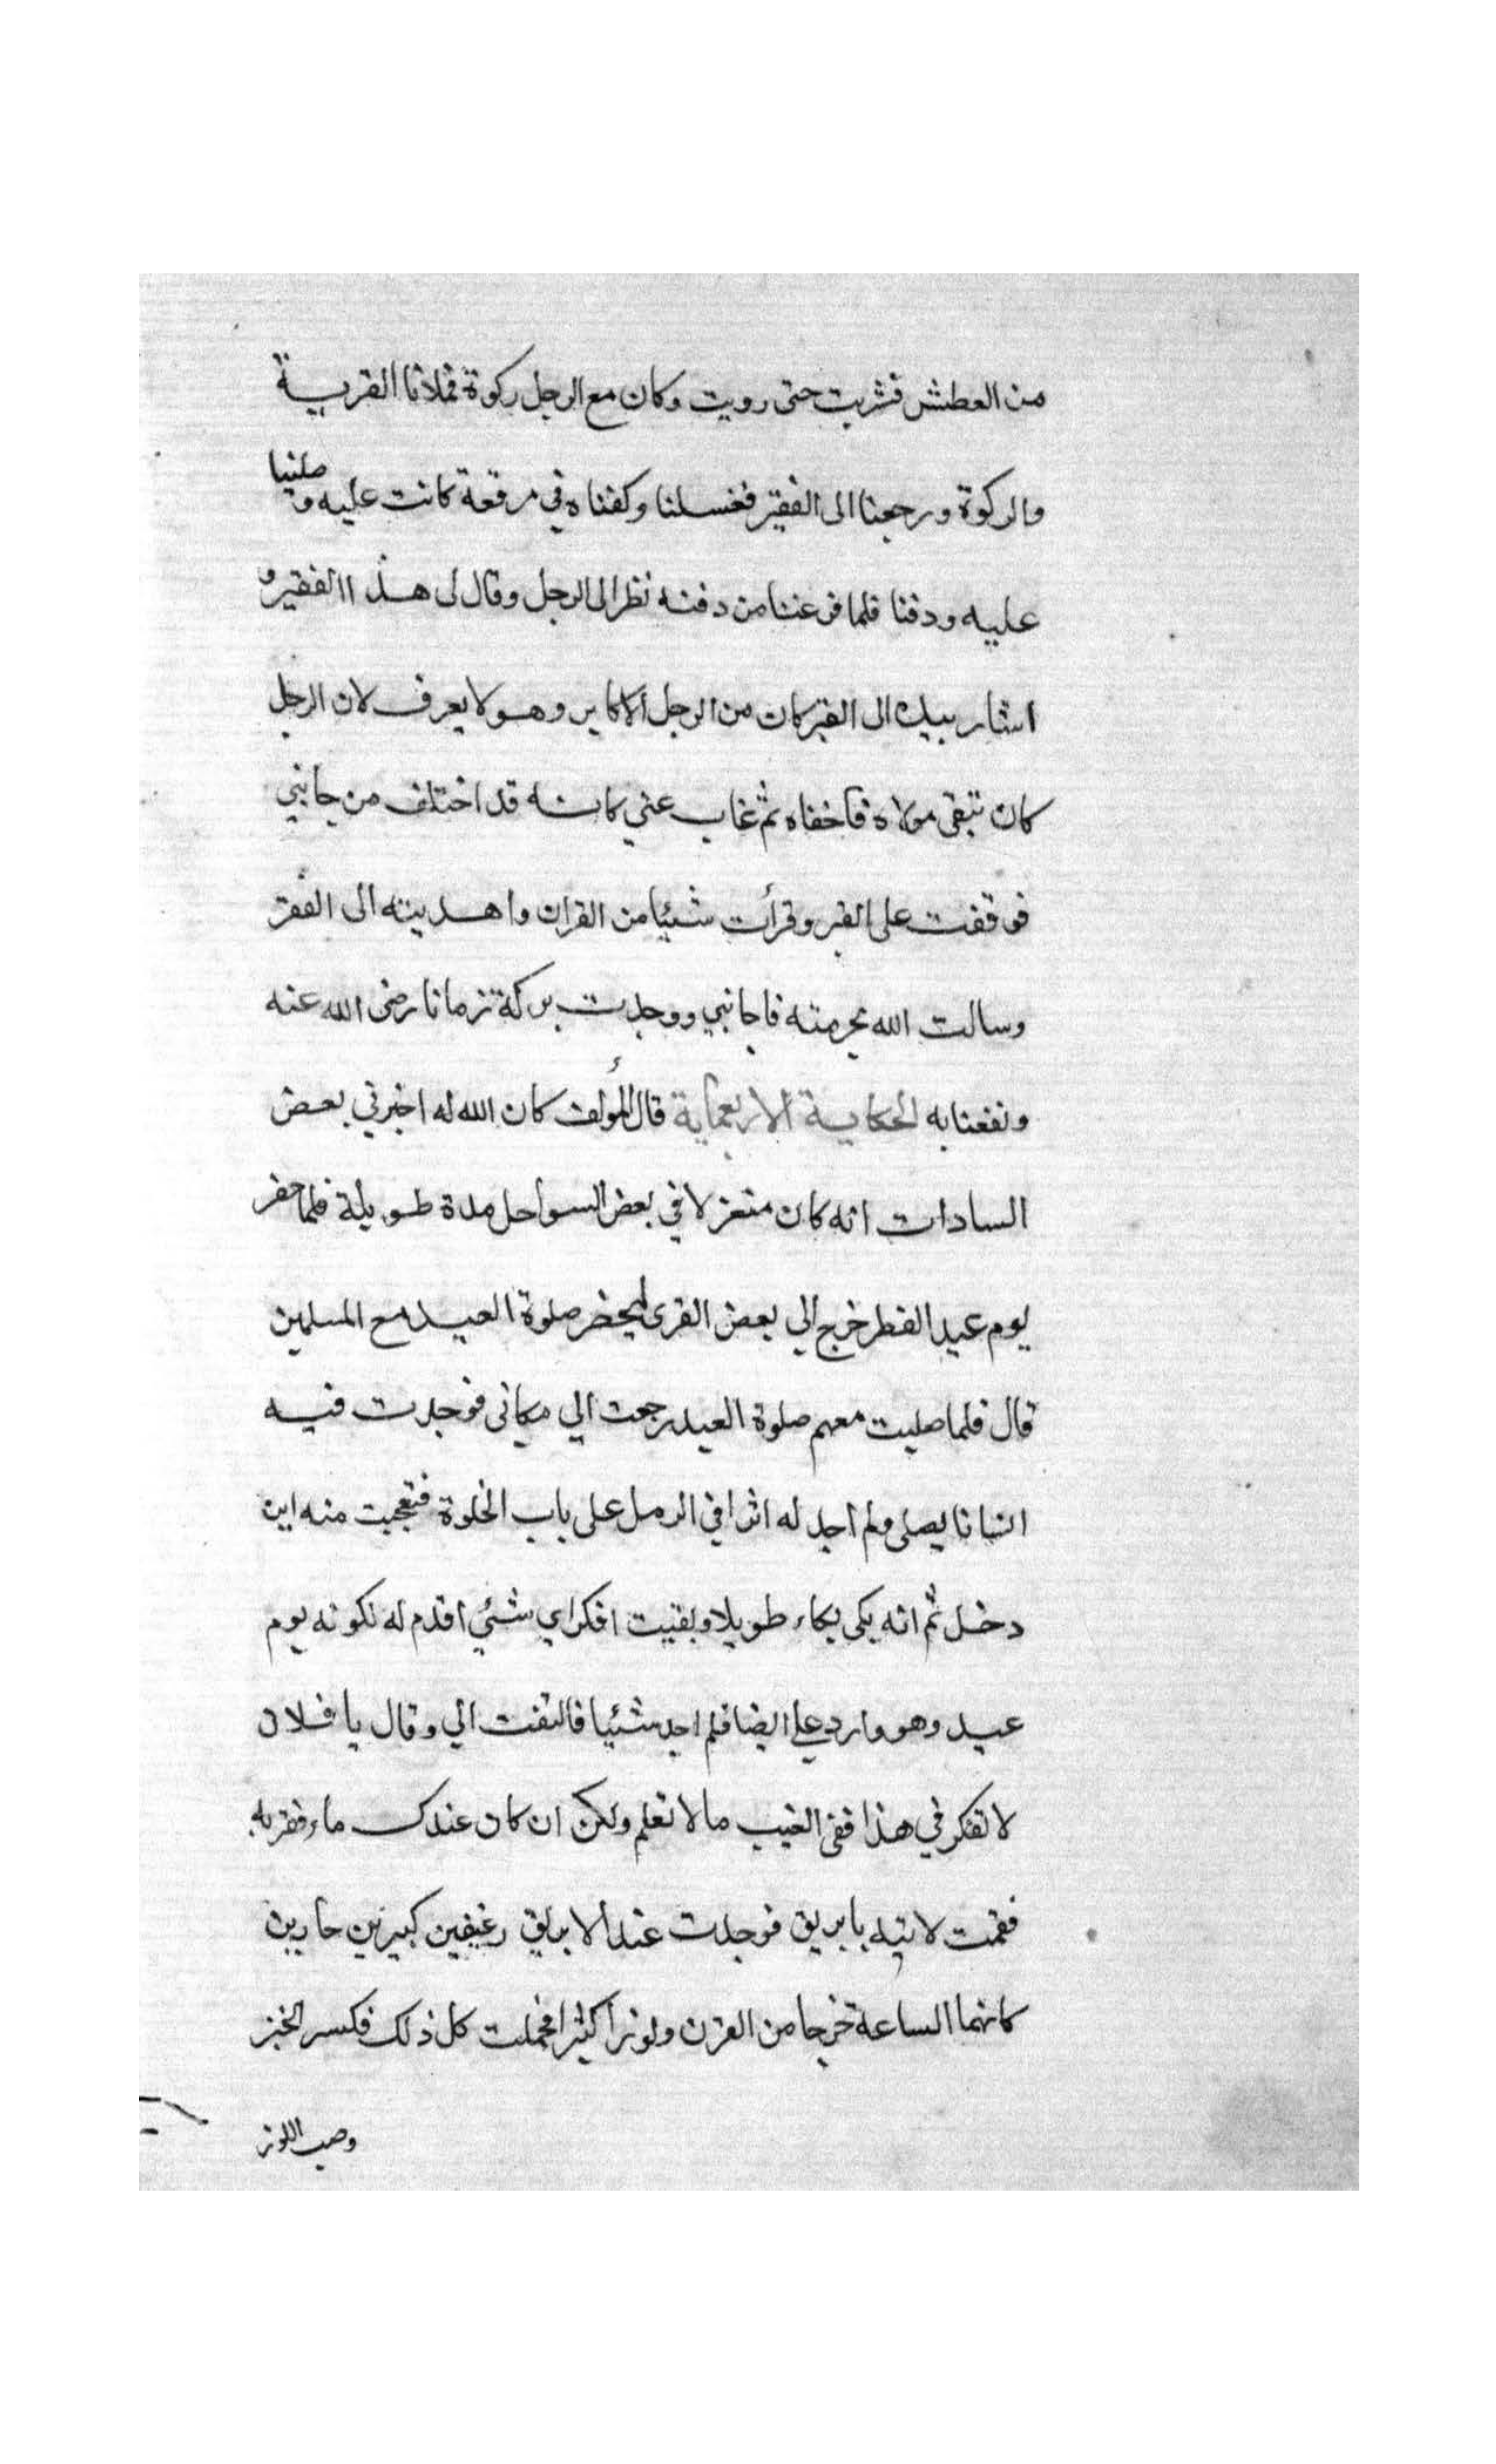 من العطش فشربت حتى رويت وكان مع الرجل ركوة فملانا القربة
والركوة ورجعنا الى الفقير فغسلنا وكفناه في مرقعة كانت عليه وصلينا
عليه ودفنا فلما فرغنا من دفنه نظر الى الرجل وقال لى هذا الفقير و
اشار بيده الى القبر كان من الرجل الاكابر وهو لا يعرف لان الرجل
كان تيقى مولاه فاخفاه ثم غاب عني كانه قد اختلف من جانبي
فوقفت على القبر وقرأت شيئا من القران واهديته الى الفقر
وسالت الله بحرمته فاجانبي ووجدت بركة زمانا رضى الله عنه
ونفعنا به الحكاية الاربعماية قال المؤلف كان الله له اخبرني بعض
السادات انه كان منعزلا في بعض السواحل مدة طويلة فلما حضر
يوم عيد الفطر خرج الي بعض القرى ليحضر صلوة العيد مع المسلمين
قال فلما صليت معهم صلوة العيد رجعت الي مكانى فوجدت فيه
انسانا يصلى ولم اجد له اثرا في الرمل على باب الخلوة فتعجبت منه اين
دخل ثم انه بكى بكاء طويلا وبقيت افكر اي شئي اقدم له لكونه يوم
عيد وهو وارد علي ايضا فلم اجد شئيا فالتفت الي وقال يا فلان
لا تفكر في هذا ففى الغيب ما لا تعلم ولكن ان كان عندك ماء فقر به
فقمت لاتيه بابريق فوجدت عند الابريق رغيفين كبيرين حارين
كانهما الساعة خرجا من الفرن ولوزا كثيرا فحملت كل ذلك فكسر الخبز
وصب اللوز